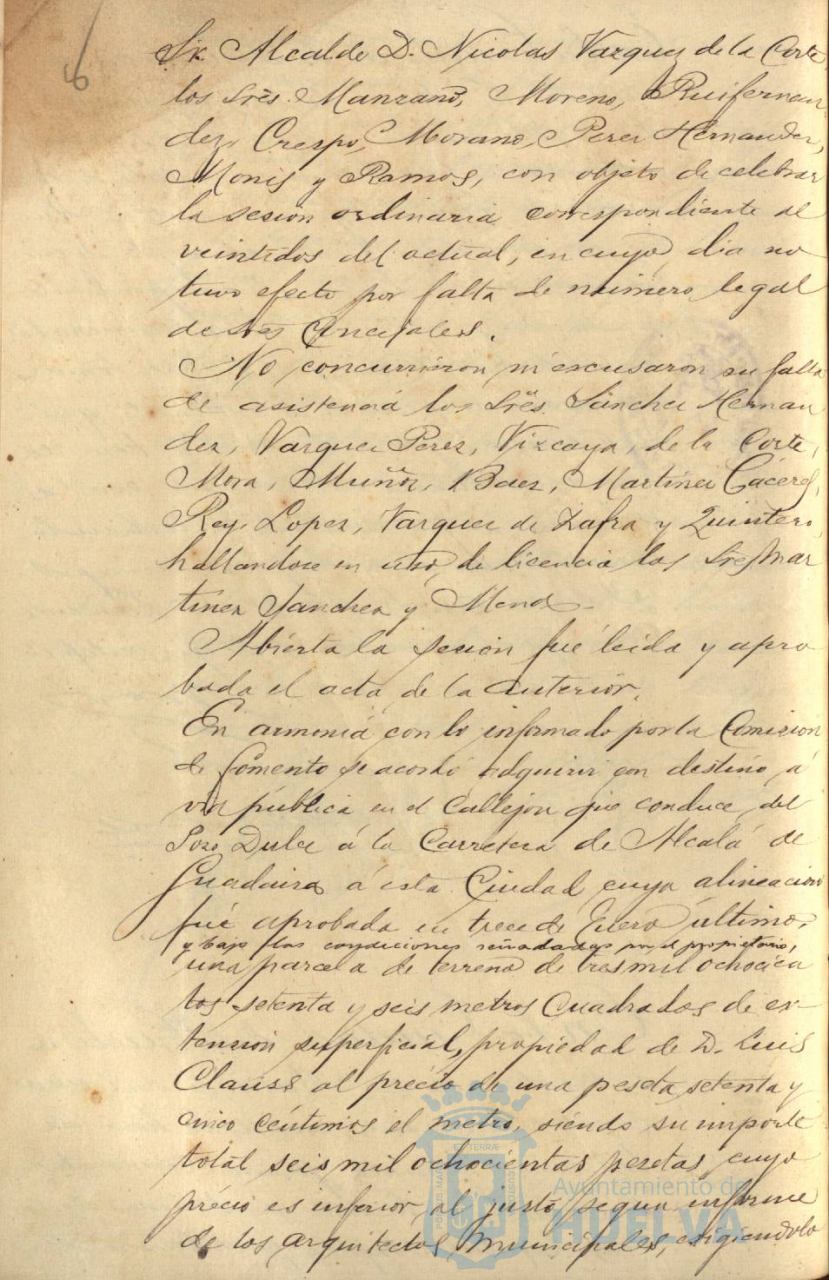 6
Sr. Alcalde D. Nicolas Vazquez de la Corte
los Srēs. Manzano, Moreno, Ruifernan
dez, Crespo, Morano, Perez Hernandez,
Monis y Ramos, con objeto de celebrar
la sesion ordinaria correspondiente al
veintidos del actual, en cuyo dia no
tuvo efecto por falta de número legal
de Srēs Concejales.
No concurrieron ni excusaron su falta
de asistencia los Srēs. Sánchez Hernan
dez, Vazquez Perez, Vizcaya, de la Corte,
Mora, Muñoz, Baez, Martinez Cáceres,
Rey, Lopez, Vazquez de Zafra y Quintero,
hallandose en uso de licencia los Sres Mar
tinez Sanchez y
Abierta la sesion fué leida y apro
bada el acta de la anterior.
En armonia con lo informado por la Comision
de Fomento se acordó adquirir con destino á
via pública en el Callejon que conduce del
Pozo Dulce á la Carretera de Alcalá de
Guadaira á esta Ciudad cuya alineacion
fué aprobada en trece de Enero último,
y bajo las condiciones señaladas por el propietario,
una parcela de terreno de tres mil ochocien
tos setenta y seis metros cuadrados de ex-
tension superficial, propiedad de D. Luis
Clauss al précio de una peseta setenta y
cinco céntimos el metro, siendo su importe
total seis mil ochocientas pesetas, cuyo
précio es inferior al justo, segun informe
de los arquitectos municipales, exigiendolo
PORTUS MARIS
ET TERRAE
Ayuntamiento de
HUELVA